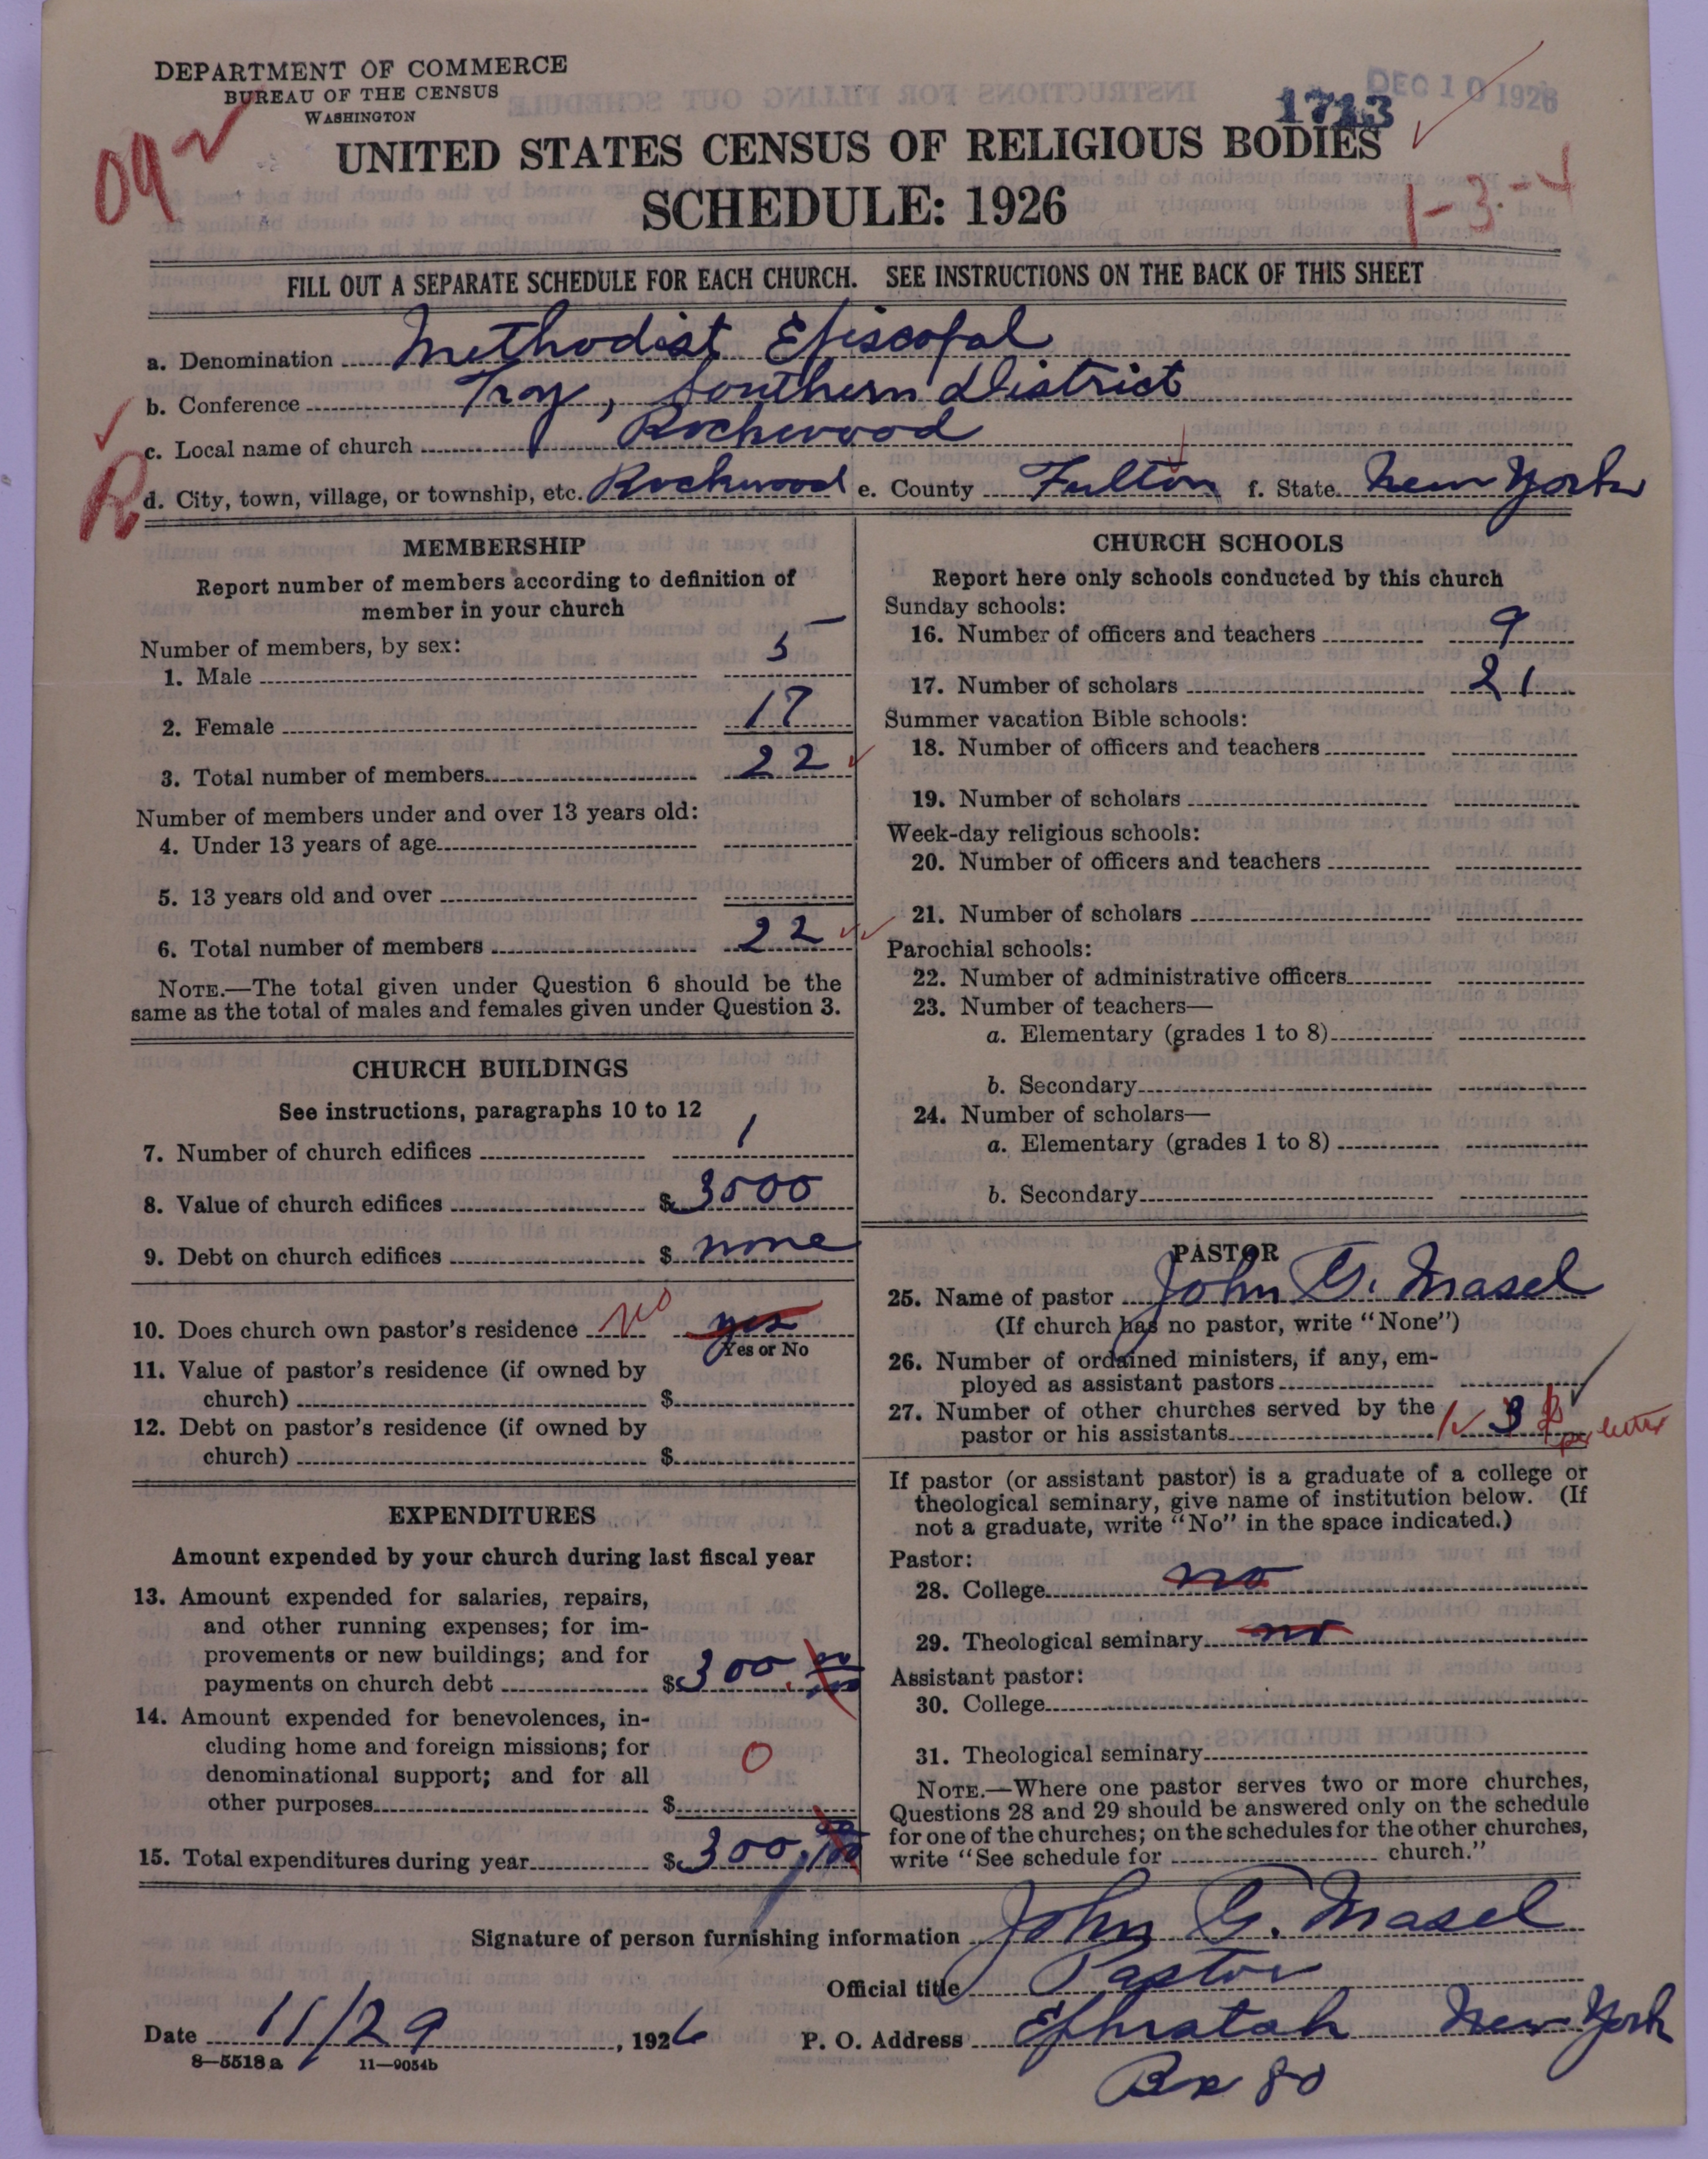 DEPARTMENT OF COMMERCE
BUREAU OF THE CENSUS
WASHINGTON
DEC 10 1926
1713
09
UNITED STATES CENSUS OF RELIGIOUS BODIES
SCHEDULE: 1926
1-3-4
FILL OUT A SEPARATE SCHEDULE FOR EACH CHURCH. SEE INSTRUCTIONS ON THE BACK OF THIS SHEET
a. Denomination Methodist Episcopal
b. Conference Troy, Southern District
c. Local name of church Rockwood
R
d. City, town, village, or township, etc. Rockwood e. County Fulton f. State New York
MEMBERSHIP
Report number of members according to definition of
member in your church
Number of members, by sex:
1. Male 5
2. Female 17
3. Total number of members 22
Number of members under and over 13 years old:
4. Under 13 years of age
5. 13 years old and over
6. Total number of members 22
NOTE.—The total given under Question 6 should be the
same as the total of males and females given under Question 3.
CHURCH BUILDINGS
See instructions, paragraphs 10 to 12
7. Number of church edifices 1
8. Value of church edifices $ 3000
9. Debt on church edifices $ none
10. Does church own pastor's residence no yes
Yes or No
11. Value of pastor's residence (if owned by
church) $
12. Debt on pastor's residence (if owned by
church) $
EXPENDITURES
Amount expended by your church during last fiscal year
13. Amount expended for salaries, repairs,
and other running expenses; for im-
provements or new buildings; and for
payments on church debt $ 300.
14. Amount expended for benevolences, in-
cluding home and foreign missions; for
denominational support; and for all
other purposes $ 0
15. Total expenditures during year $ 300.
CHURCH SCHOOLS
Report here only schools conducted by this church
Sunday schools:
16. Number of officers and teachers 9
17. Number of scholars 21
Summer vacation Bible schools:
18. Number of officers and teachers
19. Number of scholars
Week-day religious schools:
20. Number of officers and teachers
21. Number of scholars
Parochial schools:
22. Number of administrative officers
23. Number of teachers—
a. Elementary (grades 1 to 8)
b. Secondary
24. Number of scholars—
a. Elementary (grades 1 to 8)
b. Secondary
PASTOR
25. Name of pastor John G. Masel
(If church has no pastor, write "None")
26. Number of ordained ministers, if any, em-
ployed as assistant pastors
27. Number of other churches served by the
pastor or his assistants 3 per letter
If pastor (or assistant pastor) is a graduate of a college or
theological seminary, give name of institution below. (If
not a graduate, write "No" in the space indicated.)
Pastor:
28. College no
29. Theological seminary no
Assistant pastor:
30. College
31. Theological seminary
NOTE.—Where one pastor serves two or more churches,
Questions 28 and 29 should be answered only on the schedule
for one of the churches; on the schedules for the other churches,
write "See schedule for church."
Signature of person furnishing information John G. Masel
Official title Pastor
Date 11/29, 1926 P. O. Address Ephratah New York
8—5518a 11—9054b
Bx 80